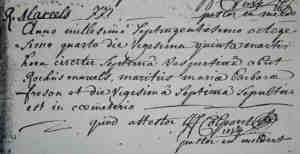 R. Marcels
Anno millesimo septingentesimo octoge-
simo quarto die vigesima quinta martii
hora circiter septima vespertina obiit
Rochus marcels, maritus maria barbara
froson et die vigesima septima sepultus
est in coemiterio
quod attestor
pastor in